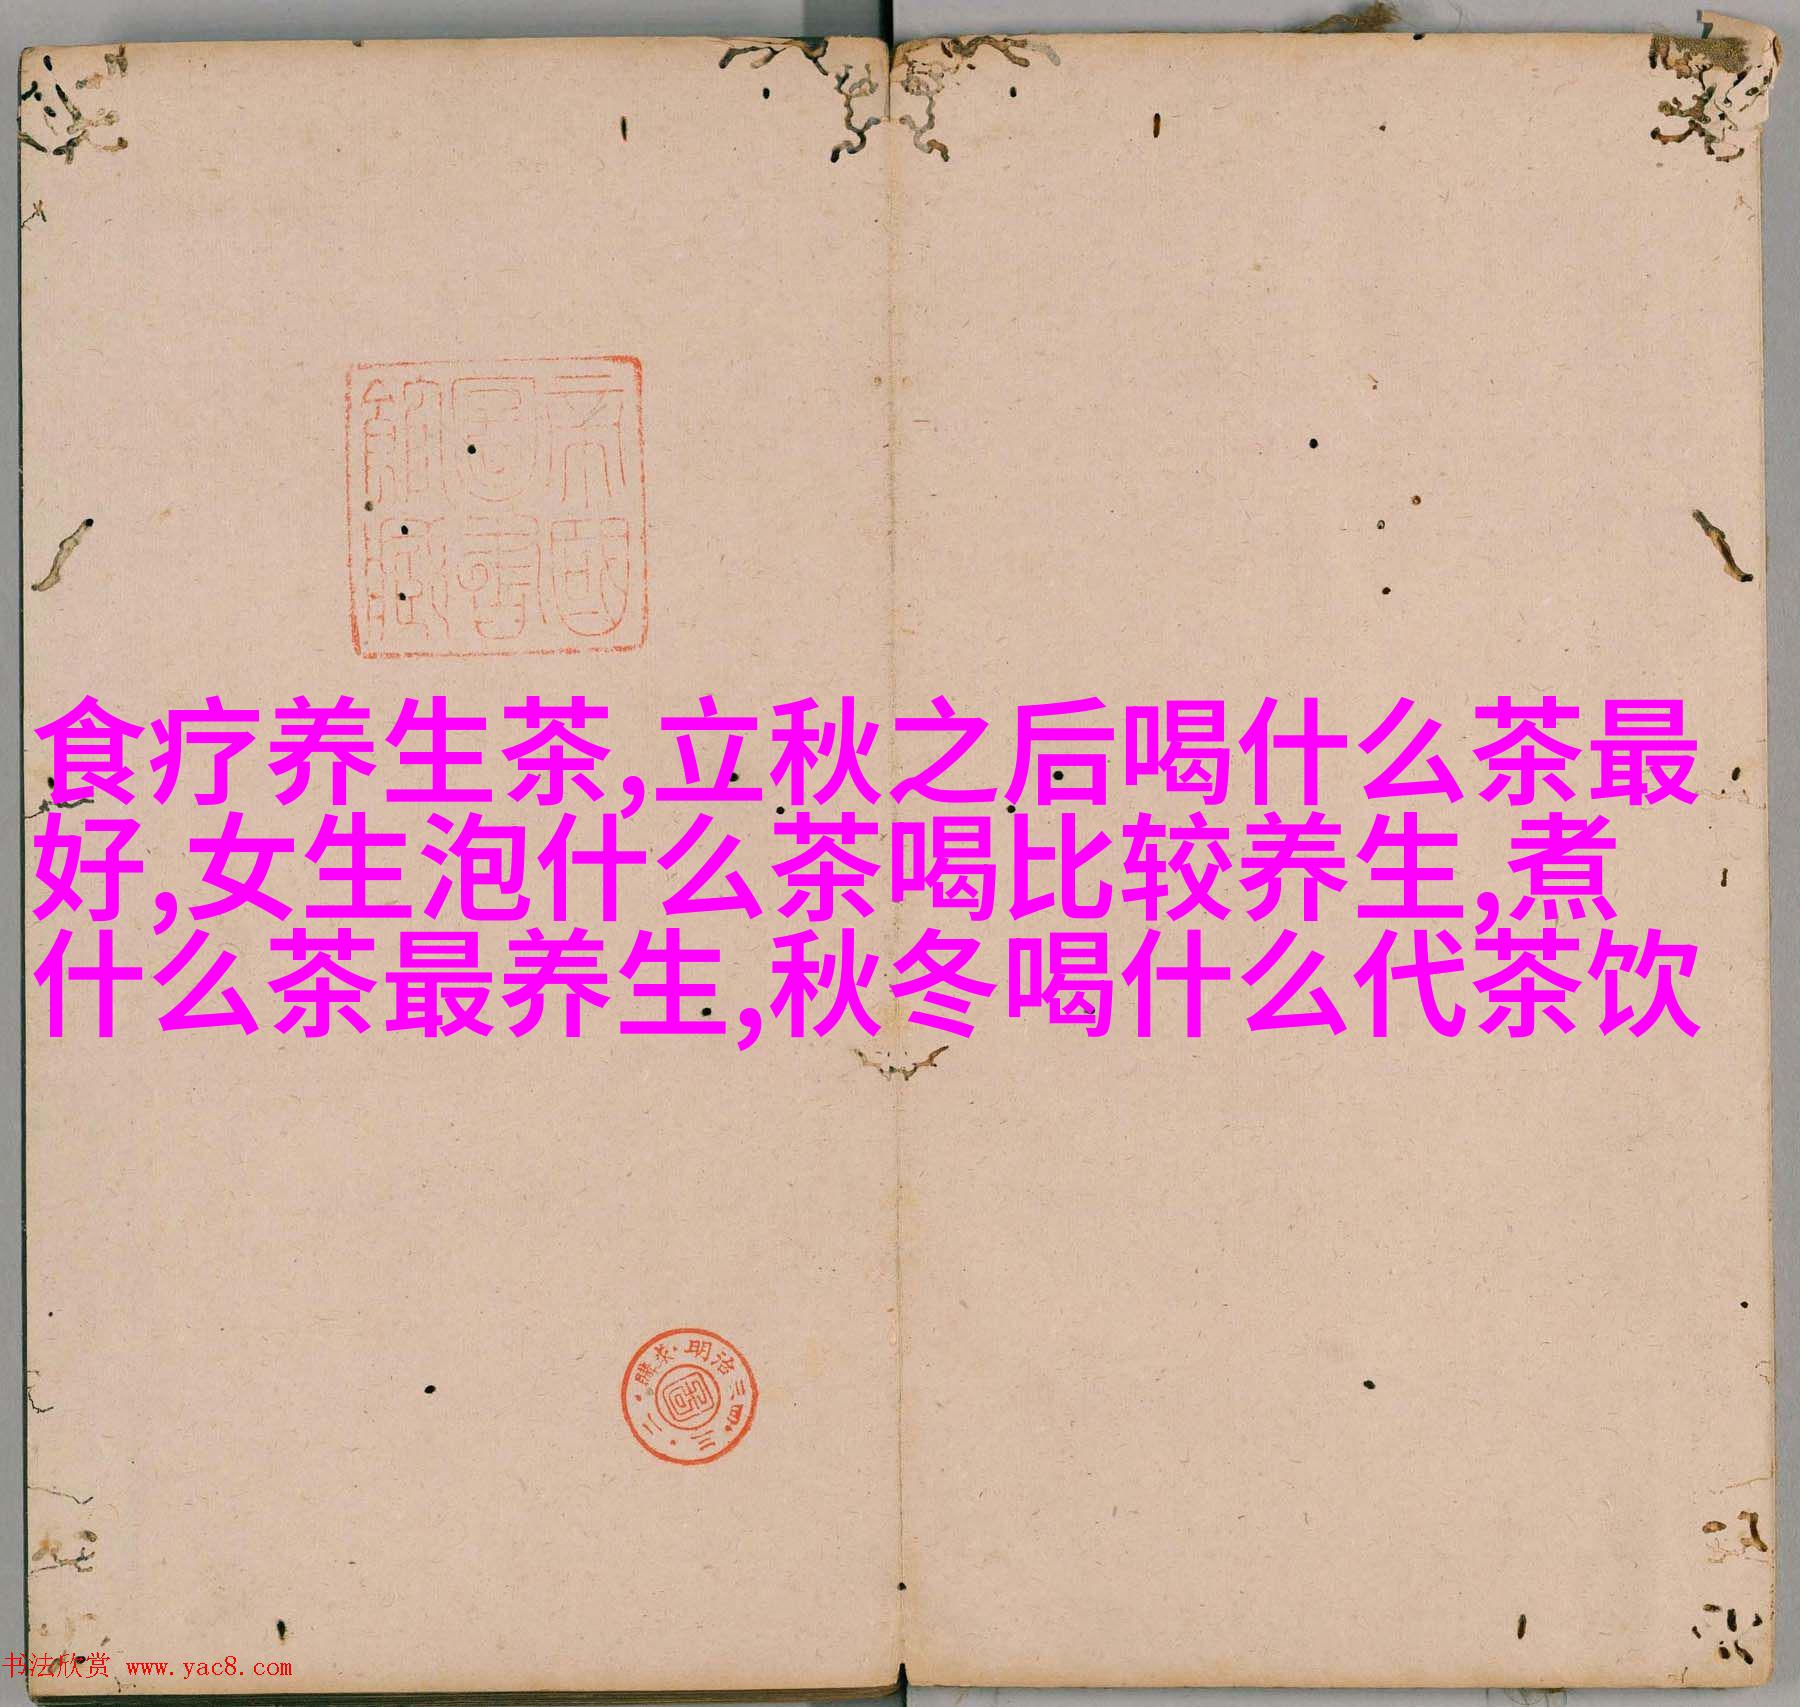 帝國
圖書
館藏
食疗养生茶,立秋之后喝什么茶最
好,女生泡什么茶喝比较养生,煮
什么茶最养生,秋冬喝什么代茶饮
明治三四·三·二·購求·
书法欣赏 www.yac8.com